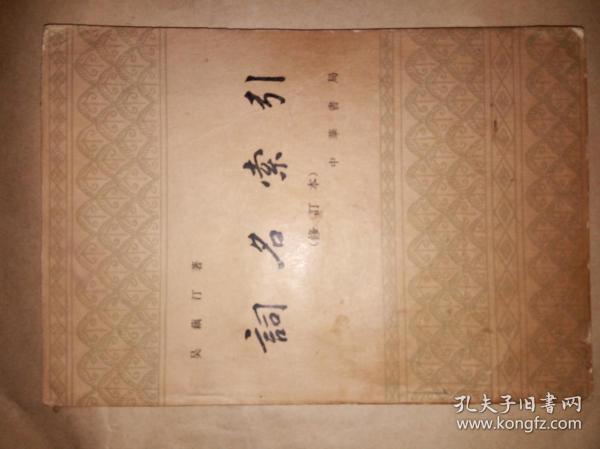 吴藕汀著
詞名索引
(修訂本)
中華書局
孔夫子旧書网
www.kongfz.com